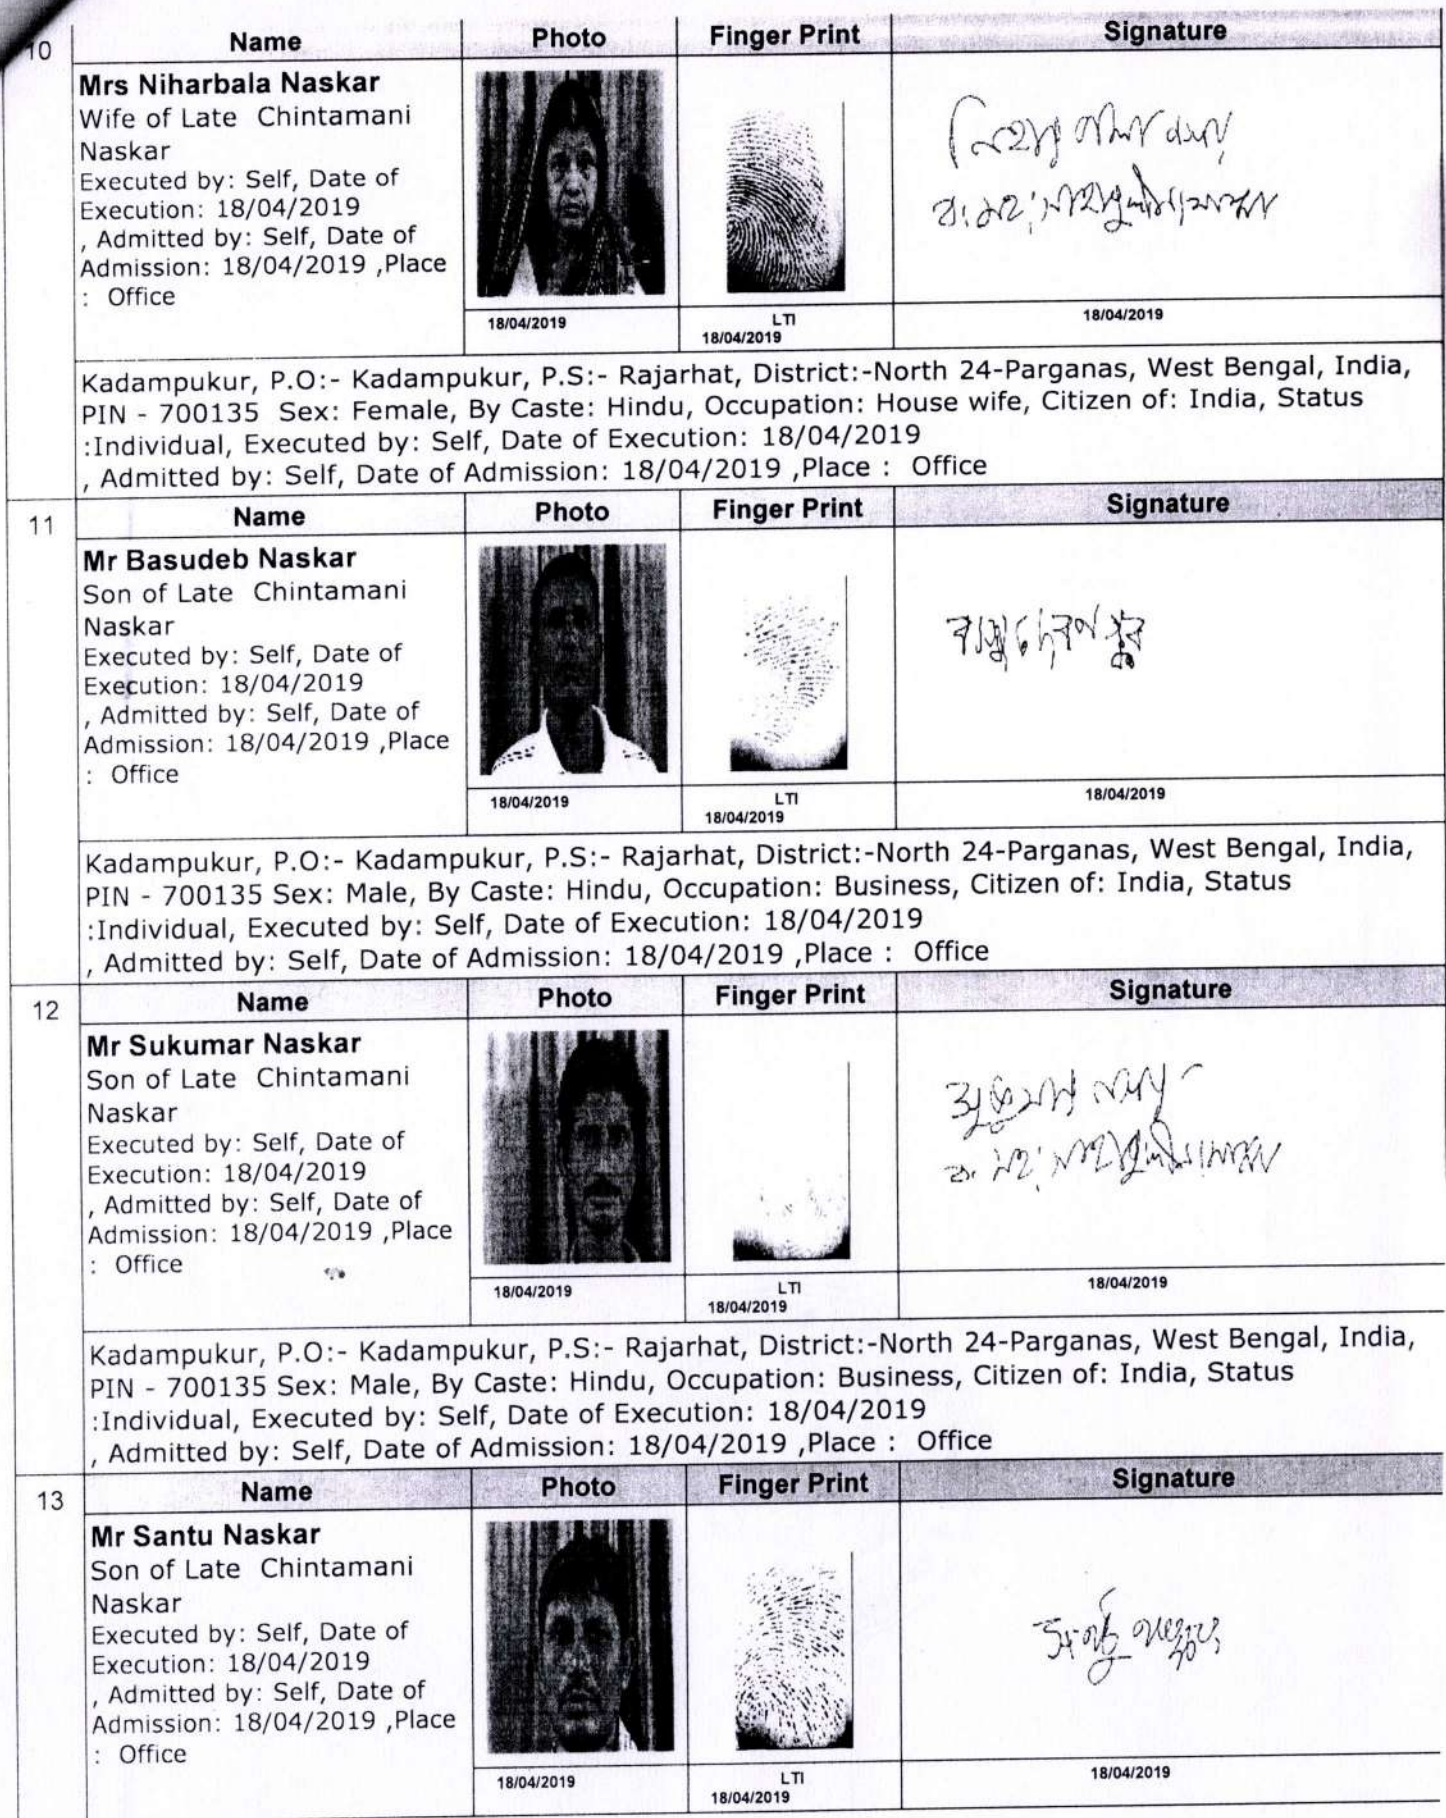 10
Name Photo Finger Print Signature
Mrs Niharbala Naskar
Wife of Late Chintamani
Naskar
Executed by: Self, Date of
Execution: 18/04/2019
, Admitted by: Self, Date of
Admission: 18/04/2019 ,Place
: Office
18/04/2019
LTI
18/04/2019
18/04/2019
Kadampukur, P.O:- Kadampukur, P.S:- Rajarhat, District:-North 24-Parganas, West Bengal, India,
PIN - 700135 Sex: Female, By Caste: Hindu, Occupation: House wife, Citizen of: India, Status
:Individual, Executed by: Self, Date of Execution: 18/04/2019
, Admitted by: Self, Date of Admission: 18/04/2019 ,Place : Office
11
Name Photo Finger Print Signature
Mr Basudeb Naskar
Son of Late Chintamani
Naskar
Executed by: Self, Date of
Execution: 18/04/2019
, Admitted by: Self, Date of
Admission: 18/04/2019 ,Place
: Office
18/04/2019
LTI
18/04/2019
18/04/2019
Kadampukur, P.O:- Kadampukur, P.S:- Rajarhat, District:-North 24-Parganas, West Bengal, India,
PIN - 700135 Sex: Male, By Caste: Hindu, Occupation: Business, Citizen of: India, Status
:Individual, Executed by: Self, Date of Execution: 18/04/2019
, Admitted by: Self, Date of Admission: 18/04/2019 ,Place : Office
12
Name Photo Finger Print Signature
Mr Sukumar Naskar
Son of Late Chintamani
Naskar
Executed by: Self, Date of
Execution: 18/04/2019
, Admitted by: Self, Date of
Admission: 18/04/2019 ,Place
: Office
18/04/2019
LTI
18/04/2019
18/04/2019
Kadampukur, P.O:- Kadampukur, P.S:- Rajarhat, District:-North 24-Parganas, West Bengal, India,
PIN - 700135 Sex: Male, By Caste: Hindu, Occupation: Business, Citizen of: India, Status
:Individual, Executed by: Self, Date of Execution: 18/04/2019
, Admitted by: Self, Date of Admission: 18/04/2019 ,Place : Office
13
Name Photo Finger Print Signature
Mr Santu Naskar
Son of Late Chintamani
Naskar
Executed by: Self, Date of
Execution: 18/04/2019
, Admitted by: Self, Date of
Admission: 18/04/2019 ,Place
: Office
সন্টু নস্কর
18/04/2019
LTI
18/04/2019
18/04/2019